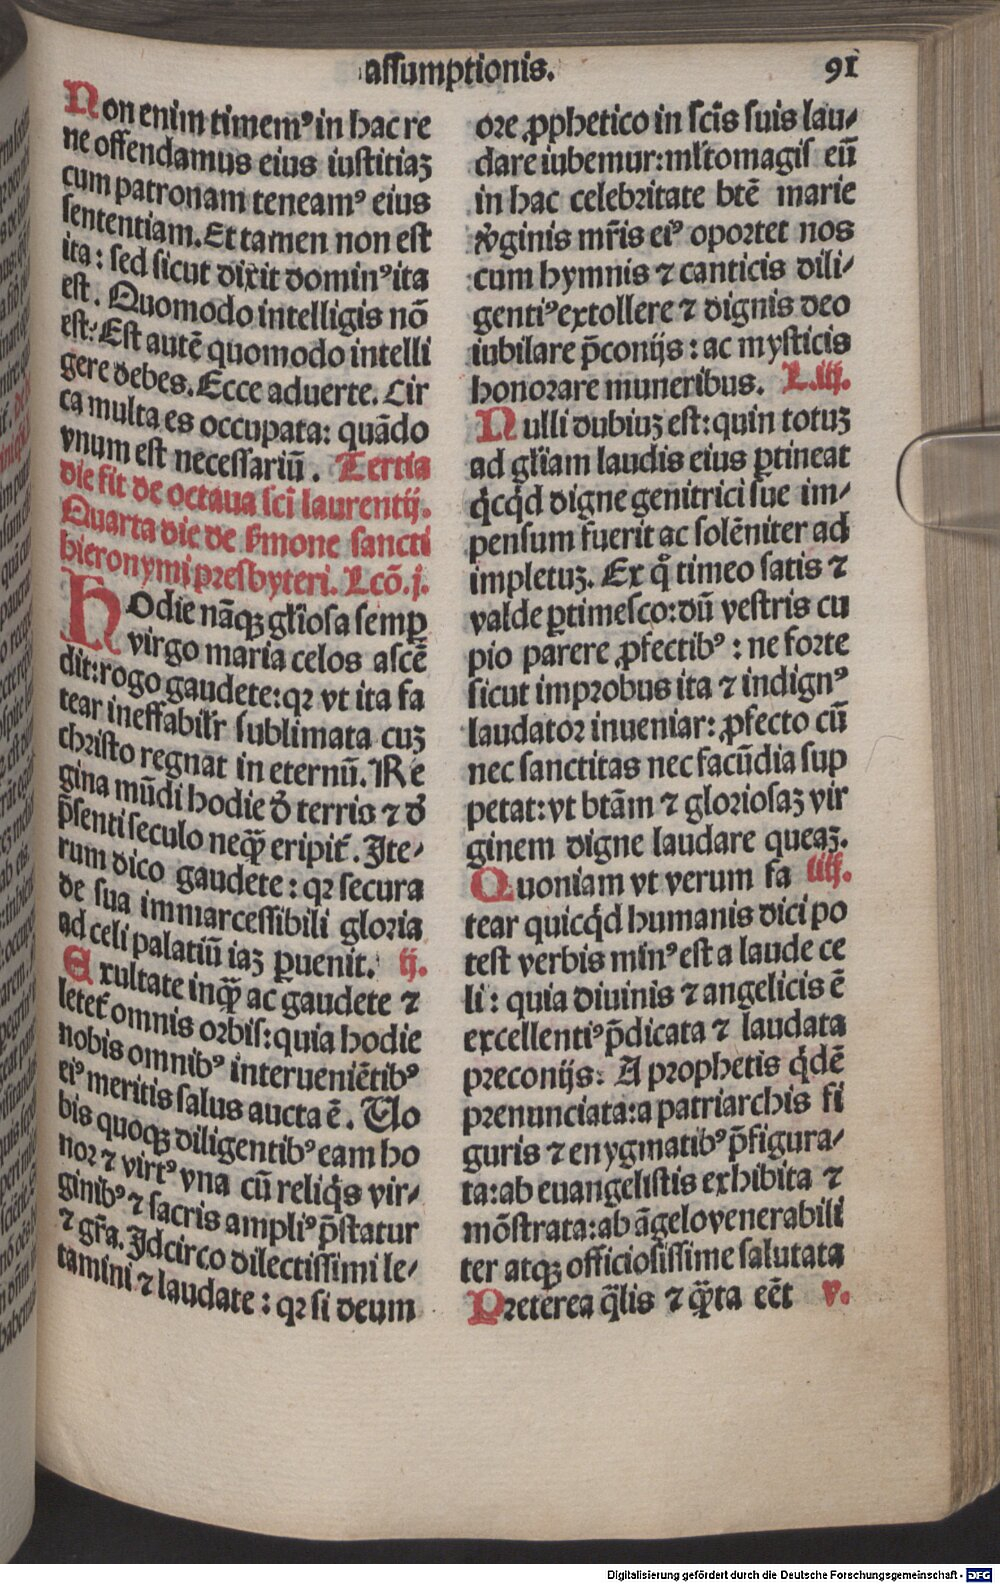 assumptionis. 91
Non enim timemꝰ in hac re
ne offendamus eius iustitiaꝫ
cum patronam teneamꝰ eius
sententiam. Et tamen non est
ita: sed sicut dixit dominꝰ ita
est. Quomodo intelligis nō
est: Est autē quomodo intelli
gere debes. Ecce aduerte. Cir
ca multa es occupata: quādo
vnum est necessariū. Tertia
die fit de octaua sci̅ laurentij.
Quarta die de s̓mone sancti
hieronymi presbyteri. Lcō. j.
HOdie nāqꝫ gl̓iosa semꝑ
virgo maria celos ascē
dit: rogo gaudete: qꝛ vt ita fa
tear ineffabilr̓ sublimata cuꝫ
christo regnat in eternū. Re
gina mūdi hodie d̓ terris ⁊ d̓
p̄senti seculo neqꝫ̄ eripit᷑. Ite⸗
rum dico gaudete: qꝛ secura
de sua immarcessibili gloria
ad celi palatiū iaꝫ ꝑuenit. ij.
Exultate inqꝫ̄ ac gaudete ⁊
letet᷑ omnis orbis: quia hodie
nobis omnibꝰ interueniētibꝰ
eiꝰ meritis salus aucta ē. No
bis quoqꝫ diligentibꝰ eam ho
nor ⁊ virtꝰ vna cū reliq̇s vir⸗
ginibꝰ ⁊ sacris ampliꝰ p̄statur
⁊ gr̄a. Idcirco dilectissimi le⸗
tamini ⁊ laudate: qꝛ si deum
ore ꝓphetico in scīs suis lau⸗
dare iubemur: ml̓tomagis eū
in hac celebritate btē marie
v̓ginis mr̄is eiꝰ oportet nos
cum hymnis ⁊ canticis dili⸗
gentiꝰ extollere ⁊ dignis deo
iubilare p̄conijs: ac mysticis
honorare muneribus. L. iij.
Nulli dubiuꝫ est: quin totuꝫ
ad gl̓iam laudis eius ꝑtineat
q̇cq̇d digne genitrici sue im⸗
pensum fuerit ac solēniter ad
impletuꝫ. Ex qͦ timeo satis ⁊
valde ꝑtimesco: dū vestris cu
pio parere ꝓfectibꝰ: ne forte
sicut improbus ita ⁊ indignꝰ
laudator inueniar: ꝓfecto cū
nec sanctitas nec facūdia sup
petat: vt btām ⁊ gloriosaꝫ vir
ginem digne laudare queaꝫ.
Quoniam vt verum fa iiij.
tear quicq̇d humanis dici po
test verbis minꝰ est a laude ce
li: quia diuinis ⁊ angelicis ē
excellentiꝰ p̄dicata ⁊ laudata
preconijs: A prophetis q̇dē
prenunciata: a patriarchis fi
guris ⁊ enygmatibꝰ p̄figura⸗
ta: ab euangelistis exhibita ⁊
mōstrata: ab āgelo venerabili
ter atqꝫ officiosissime salutata
Preterea q̄lis ⁊ qꝫ̄ta eēt v.
Digitalisierung gefördert durch die Deutsche Forschungsgemeinschaft - DFG